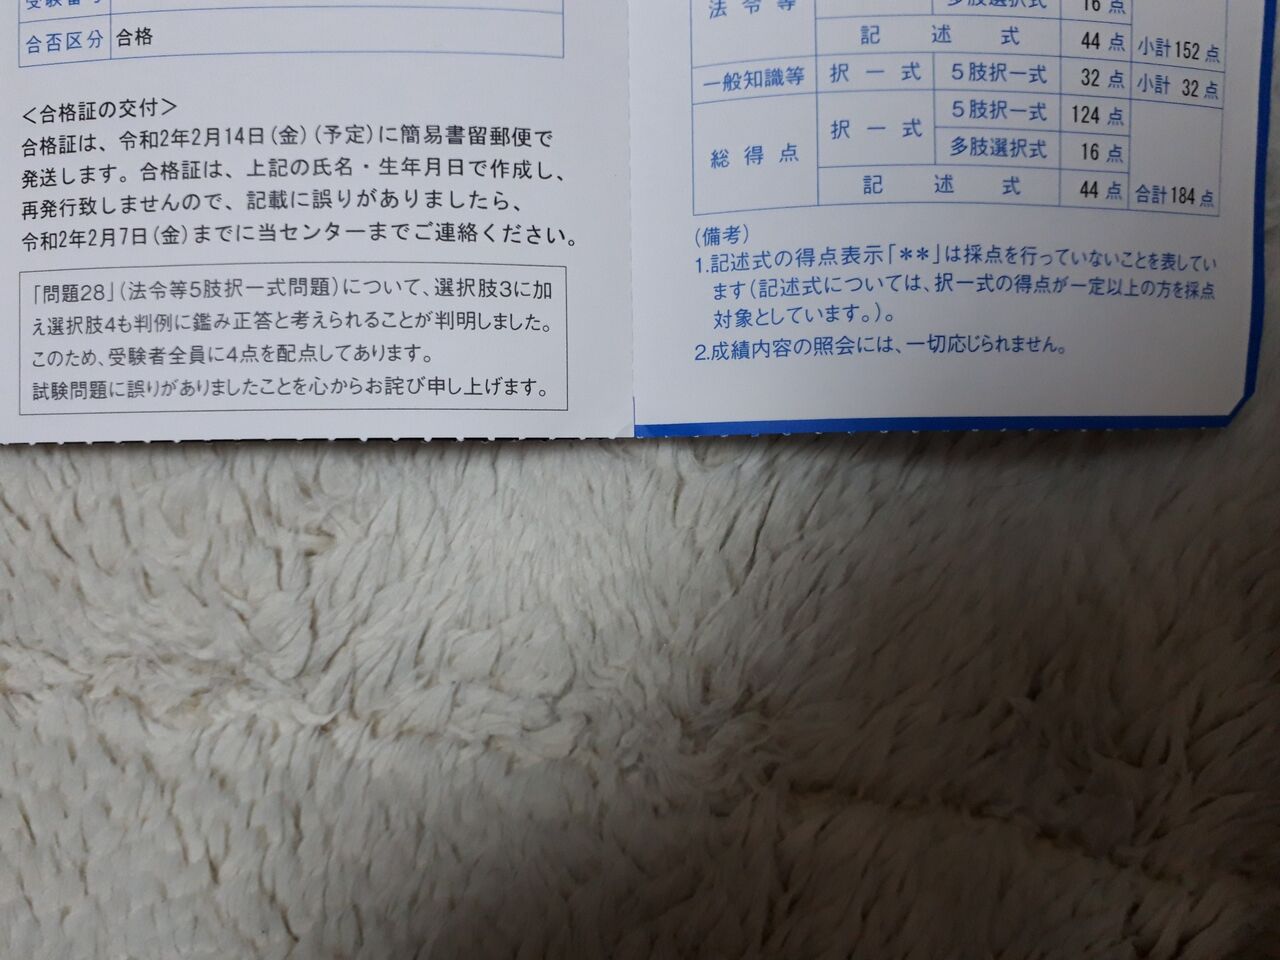 合否区分 合格
<合格証の交付>
合格証は、令和2年2月14日(金)(予定)に簡易書留郵便で
発送します。合格証は、上記の氏名・生年月日で作成し、
再発行致しませんので、記載に誤りがありましたら、
令和2年2月7日(金)までに当センターまでご連絡ください。
「問題28」(法令等5肢択一式問題)について、選択肢3に加
え選択肢4も判例に鑑み正答と考えられることが判明しました。
このため、受験者全員に4点を配点してあります。
試験問題に誤りがありましたことを心からお詫び申し上げます。
法令等 多肢選択式 16点
記述式 44点 小計152点
一般知識等 択一式 5肢択一式 32点 小計 32点
総得点 択一式 5肢択一式 124点
多肢選択式 16点
記述式 44点 合計184点
(備考)
1.記述式の得点表示「**」は採点を行っていないことを表してい
ます(記述式については、択一式の得点が一定以上の方を採点
対象としています。)。
2.成績内容の照会には、一切応じられません。